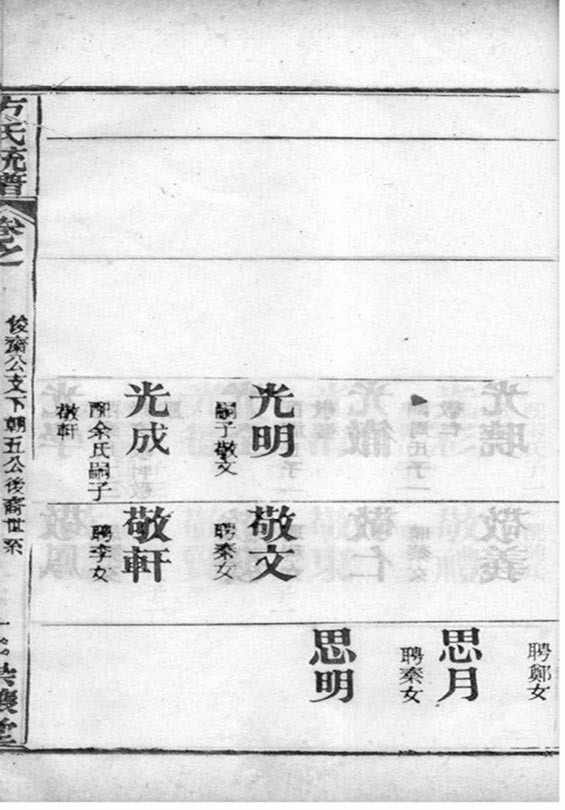 光明
嗣子敬文
光成
配余氏嗣子
敬軒
敬文
聘秦女
敬軒
聘李女
聘鄭女
思月
聘秦女
思明
方氏統譜
卷之一
俊齋公支下朝五公後裔世系